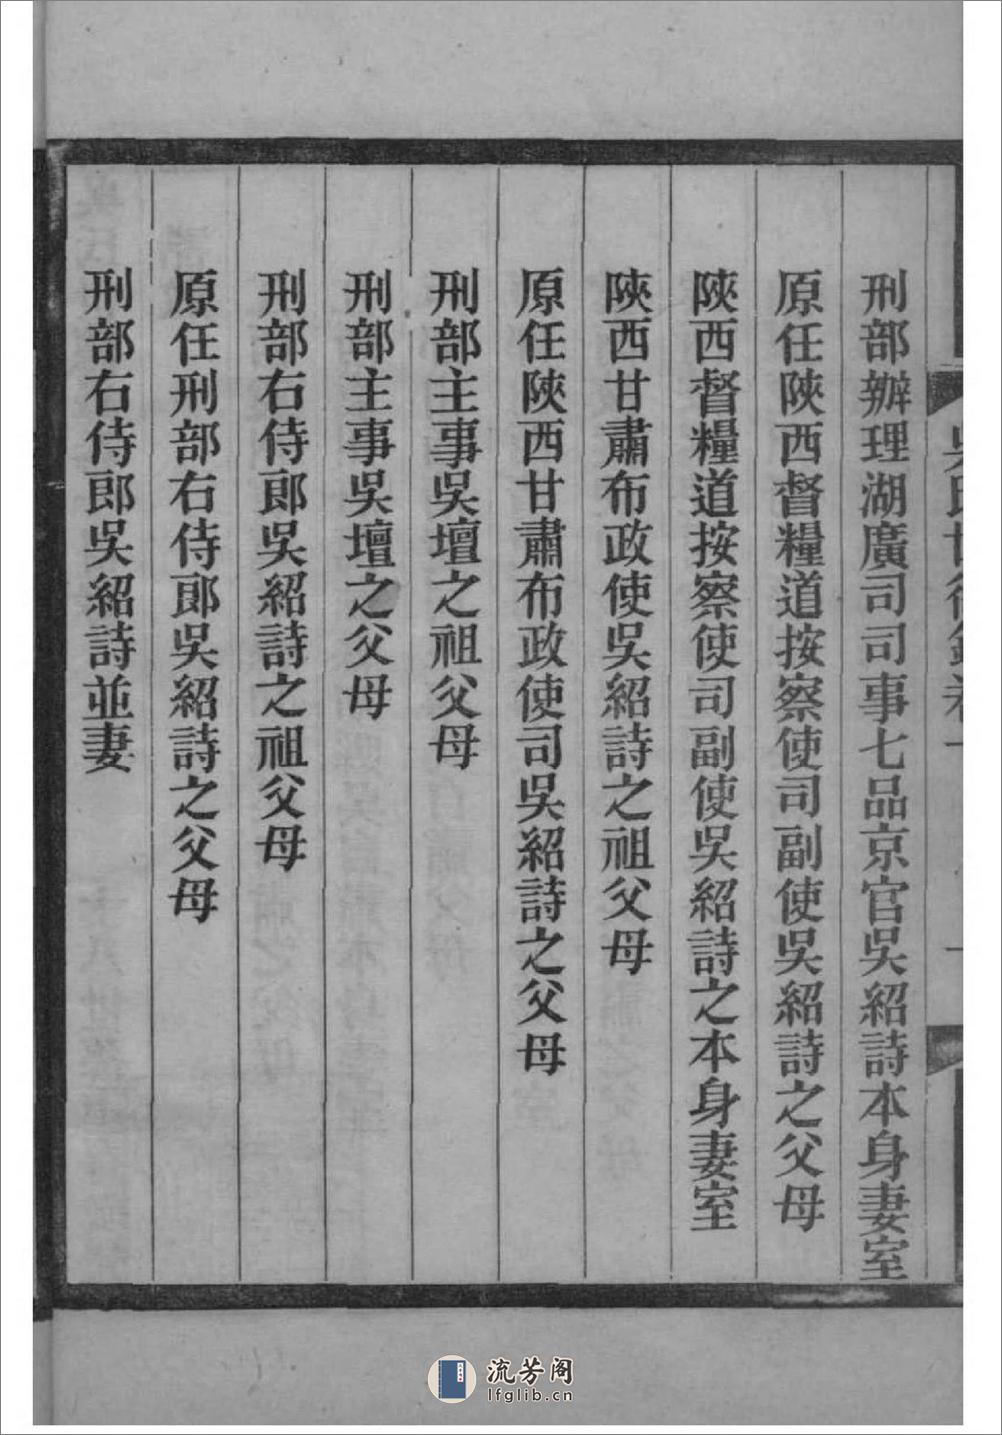 刑部辦理湖廣司司事七品京官吳紹詩本身妻室
原任陜西督糧道按察使司副使吳紹詩之父母
陜西督糧道按察使司副使吳紹詩之本身妻室
陜西甘肅布政使吳紹詩之祖父母
原任陜西甘肅布政使司吳紹詩之父母
刑部主事吳壇之祖父母
刑部主事吳壇之父母
刑部右侍郎吳紹詩之祖父母
原任刑部右侍郎吳紹詩之父母
刑部右侍郎吳紹詩並妻
流芳阁
lfglib.cn